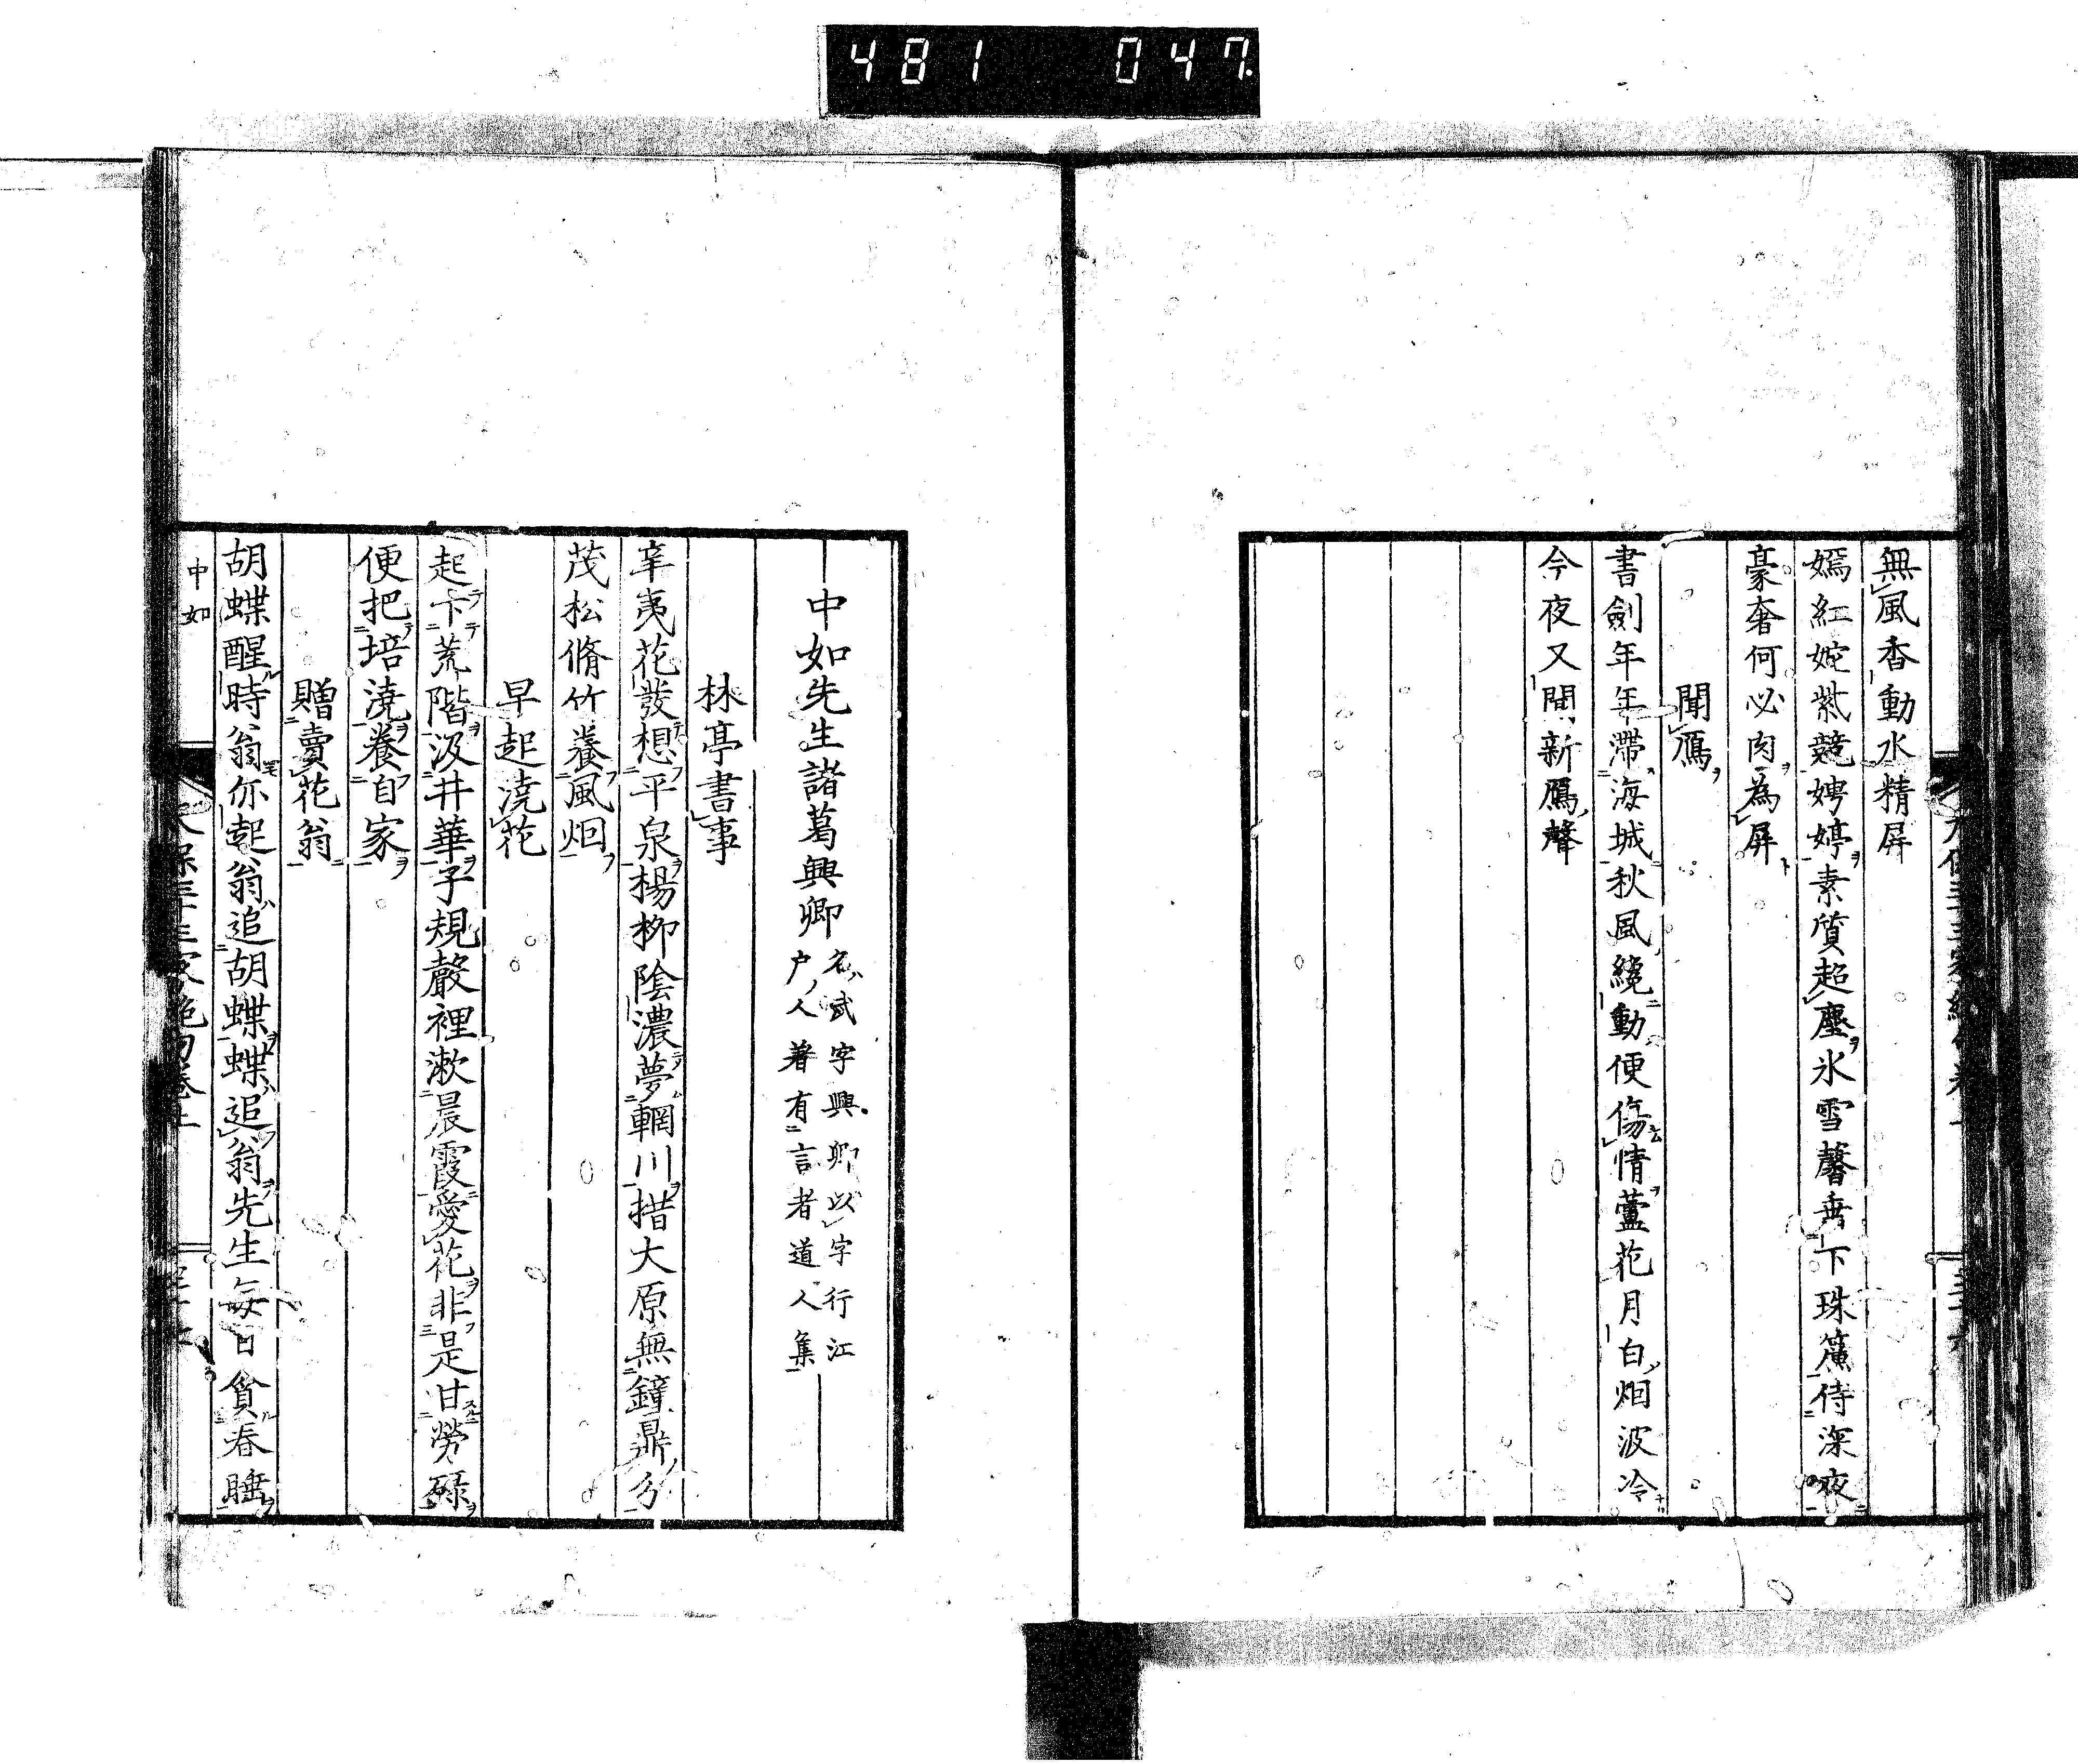 481 047
無風香動水精屏
嫣紅姹紫競娉婷素質超塵氷雪馨垂下珠簾侍深夜
豪奢何必肉為屏
聞鴈
書劍年年滯海城秋風纔動便傷情蘆花月白烟波冷
今夜又聞新鴈聲
中如先生諸葛興卿
名ハ武字興卿以字行江
戸ノ人著有言者道人集
林亭書事
辛夷花發想平泉楊柳陰濃夢輞川措大原無鐘鼎分
茂松脩竹養風烟
早起澆花
起下荒階汲井華子規聲裡漱晨霞愛花非是甘勞碌
便把培澆養自家
贈賣花翁
胡蝶醒時翁亦起翁追胡蝶蝶追翁先生每日貪春睡
中如
天保三十三家絶句卷上